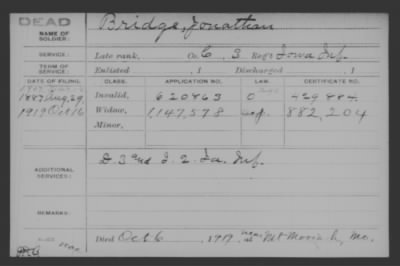 DEAD
NAME OF SOLDIER:
Bridge, Jonathan
SERVICE:
Late rank, Co. C, 3 Reg't Iowa Inf.
TERM OF SERVICE:
Enlisted , 1 Discharged , 1
DATE OF FILING. CLASS. APPLICATION NO. LAW. CERTIFICATE NO.
1887 Aug 29 Invalid, 620863 429884
1919 Oct 16 Widow, 1,147,578 882,204
Minor,
ADDITIONAL SERVICES:
D. 3 and I. 2 Ia. Inf.
REMARKS:
Died Oct 6, 1919 near Mt Moriah, Mo.